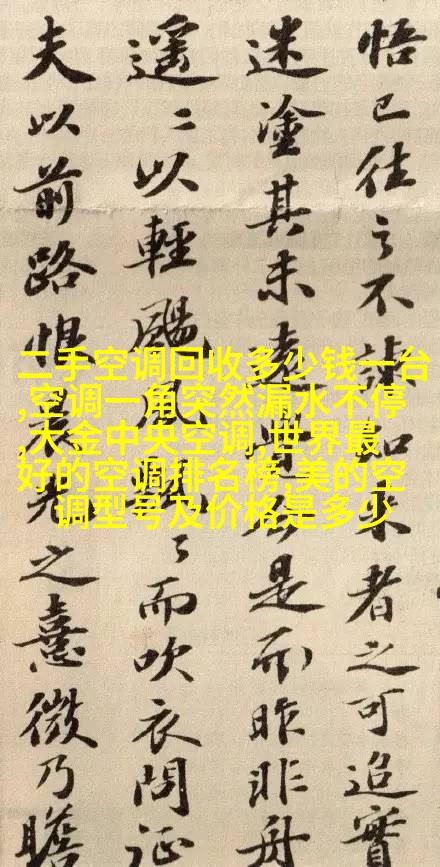 悟已往之不諫知来者之可追實
迷塗其未遠是而昨非舟
遥〻以輕颺風飄〻而吹衣問征
夫以前路恨晨光之熹微乃瞻
二手空调回收多少钱一台
,空调一角突然漏水不停
,大金中央空调,世界最
好的空调排名榜,美的空
调型号及价格是多少